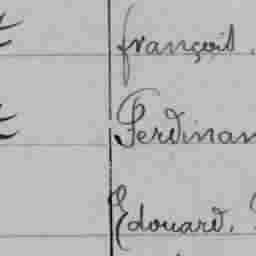 françois.
Ferdinan
Edouard.